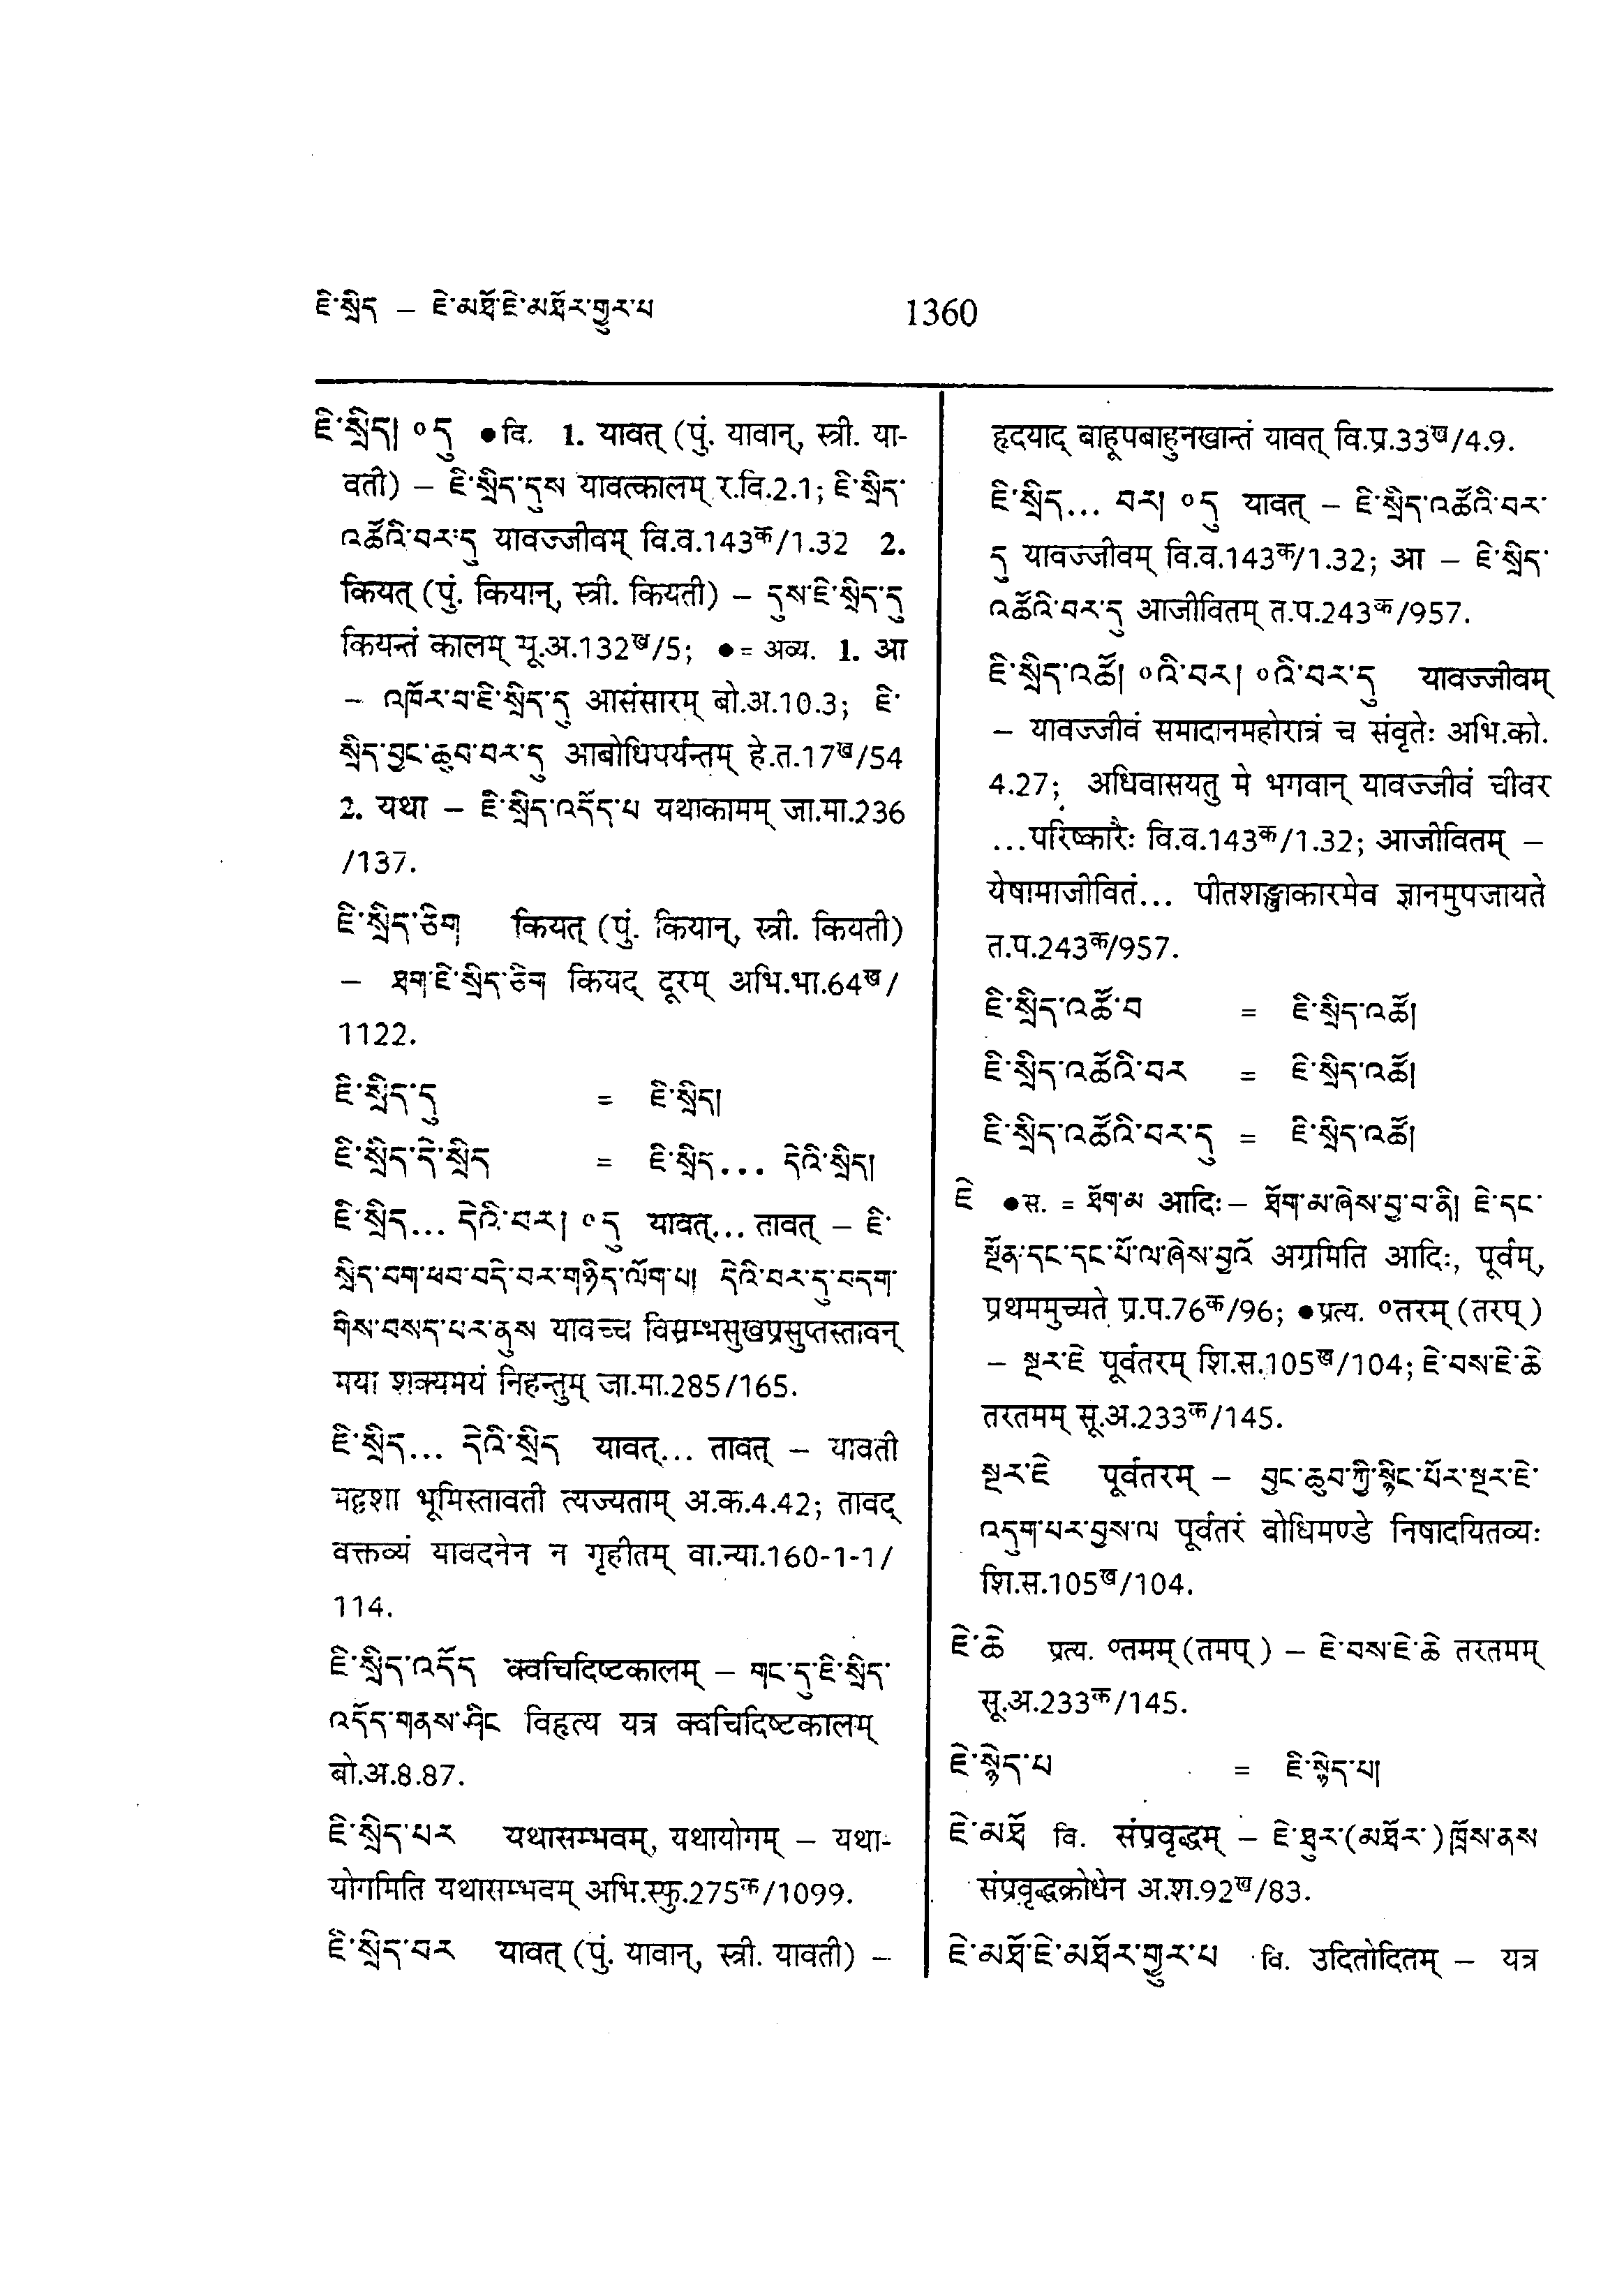 ཇི་སྲིད – ཇེ་མཐོ་ཇེ་མཐོར་གྱུར་པ 1360
ཇི་སྲིད། ༠དུ ●वि. 1. यावत् (पुं. यावान्, स्त्री. या-
वती) – ཇི་སྲིད་དུས यावत्कालम् र.वि.2.1; ཇི་སྲིད་
འཚོའི་བར་དུ यावज्जीवम् वि.व.143क/1.32 2.
कियत् (पुं. कियान्, स्त्री. कियती) – དུས་ཇི་སྲིད་དུ
कियन्तं कालम् सू.अ.132ख/5; ●= अव्य. 1. आ
– འཁོར་བ་ཇི་སྲིད་དུ आसंसारम् बो.अ.10.3; ཇི་
སྲིད་བྱང་ཆུབ་བར་དུ आबोधिपर्यन्तम् हे.त.17ख/54
2. यथा – ཇི་སྲིད་འདོད་པ यथाकामम् जा.मा.236
/137.
ཇི་སྲིད་ཅིག कियत् (पुं. कियान्, स्त्री. कियती)
– ཐག་ཇི་སྲིད་ཅིག कियद् दूरम् अभि.भा.64ख/
1122.
ཇི་སྲིད་དུ = ཇི་སྲིད།
ཇི་སྲིད་དེ་སྲིད = ཇི་སྲིད... དེའི་སྲིད།
ཇི་སྲིད... དེའི་བར། ༠དུ यावत्... तावत् – ཇི་
སྲིད་བག་ཕབ་བདེ་བར་གཉིད་ལོག་པ། དེའི་བར་དུ་བདག་
གིས་བསད་པར་ནུས यावच्च विस्रम्भसुखप्रसुप्तस्तावन्
मया शक्यमयं निहन्तुम् जा.मा.285/165.
ཇི་སྲིད... དེའི་སྲིད यावत्... तावत् – यावती
मद्दृशा भूमिस्तावती त्यज्यताम् अ.क.4.42; तावद्
वक्तव्यं यावदनेन न गृहीतम् वा.न्या.160-1-1/
114.
ཇི་སྲིད་འདོད क्वचिदिष्टकालम् – གང་དུ་ཇི་སྲིད་
འདོད་གནས་ཤིང विहृत्य यत्र क्वचिदिष्टकालम्
बो.अ.8.87.
ཇི་སྲིད་པར यथासम्भवम्, यथायोगम् – यथा-
योगमिति यथासम्भवम् अभि.स्फु.275क/1099.
ཇི་སྲིད་བར यावत् (पुं. यावान्, स्त्री. यावती) –
हृदयाद् बाहूपबाहुनखान्तं यावत् वि.प्र.33ख/4.9.
ཇི་སྲིད... བར། ༠དུ यावत् – ཇི་སྲིད་འཚོའི་བར་
དུ यावज्जीवम् वि.व.143क/1.32; आ – ཇི་སྲིད་
འཚོའི་བར་དུ आजीवितम् त.प.243क/957.
ཇི་སྲིད་འཚོ། ༠འི་བར། ༠འི་བར་དུ यावज्जीवम्
– यावज्जीवं समादानमहोरात्रं च संवृतेः अभि.को.
4.27; अधिवासयतु मे भगवान् यावज्जीवं चीवर
...परिष्कारैः वि.व.143क/1.32; आजीवितम् –
येषामाजीवितं... पीतशङ्खाकारमेव ज्ञानमुपजायते
त.प.243क/957.
ཇི་སྲིད་འཚོ་བ = ཇི་སྲིད་འཚོ།
ཇི་སྲིད་འཚོའི་བར = ཇི་སྲིད་འཚོ།
ཇི་སྲིད་འཚོའི་བར་དུ = ཇི་སྲིད་འཚོ།
ཇེ ●स. = ཐོག་མ आदिः – ཐོག་མ་ཞེས་བྱ་བ་ནི། ཇེ་དང་
སྔོན་དང་དང་པོ་ལ་ཞེས་བྱའོ अग्रमिति आदिः, पूर्वम्,
प्रथममुच्यते प्र.प.76क/96; ●प्रत्य. ०तरम् (तरप्)
– སྔར་ཇེ पूर्वतरम् शि.स.105ख/104; ཇེ་བས་ཇེ་ཆེ
तरतमम् सू.अ.233क/145.
སྔར་ཇེ पूर्वतरम् – བྱང་ཆུབ་ཀྱི་སྙིང་པོར་སྔར་ཇེ་
འདུག་པར་བྱས་ལ पूर्वतरं बोधिमण्डे निषादयितव्यः
शि.स.105ख/104.
ཇེ་ཆེ प्रत्य. ०तमम् (तमप्) – ཇེ་བས་ཇེ་ཆེ तरतमम्
सू.अ.233क/145.
ཇེ་སྙེད་པ = ཇི་སྙེད་པ།
ཇེ་མཐོ वि. संप्रवृद्धम् – ཇེ་ཐུར་(མཐོར་)ཁྲོས་ནས
संप्रवृद्धक्रोधेन अ.श.92ख/83.
ཇེ་མཐོ་ཇེ་མཐོར་གྱུར་པ वि. उदितोदितम् – यत्र